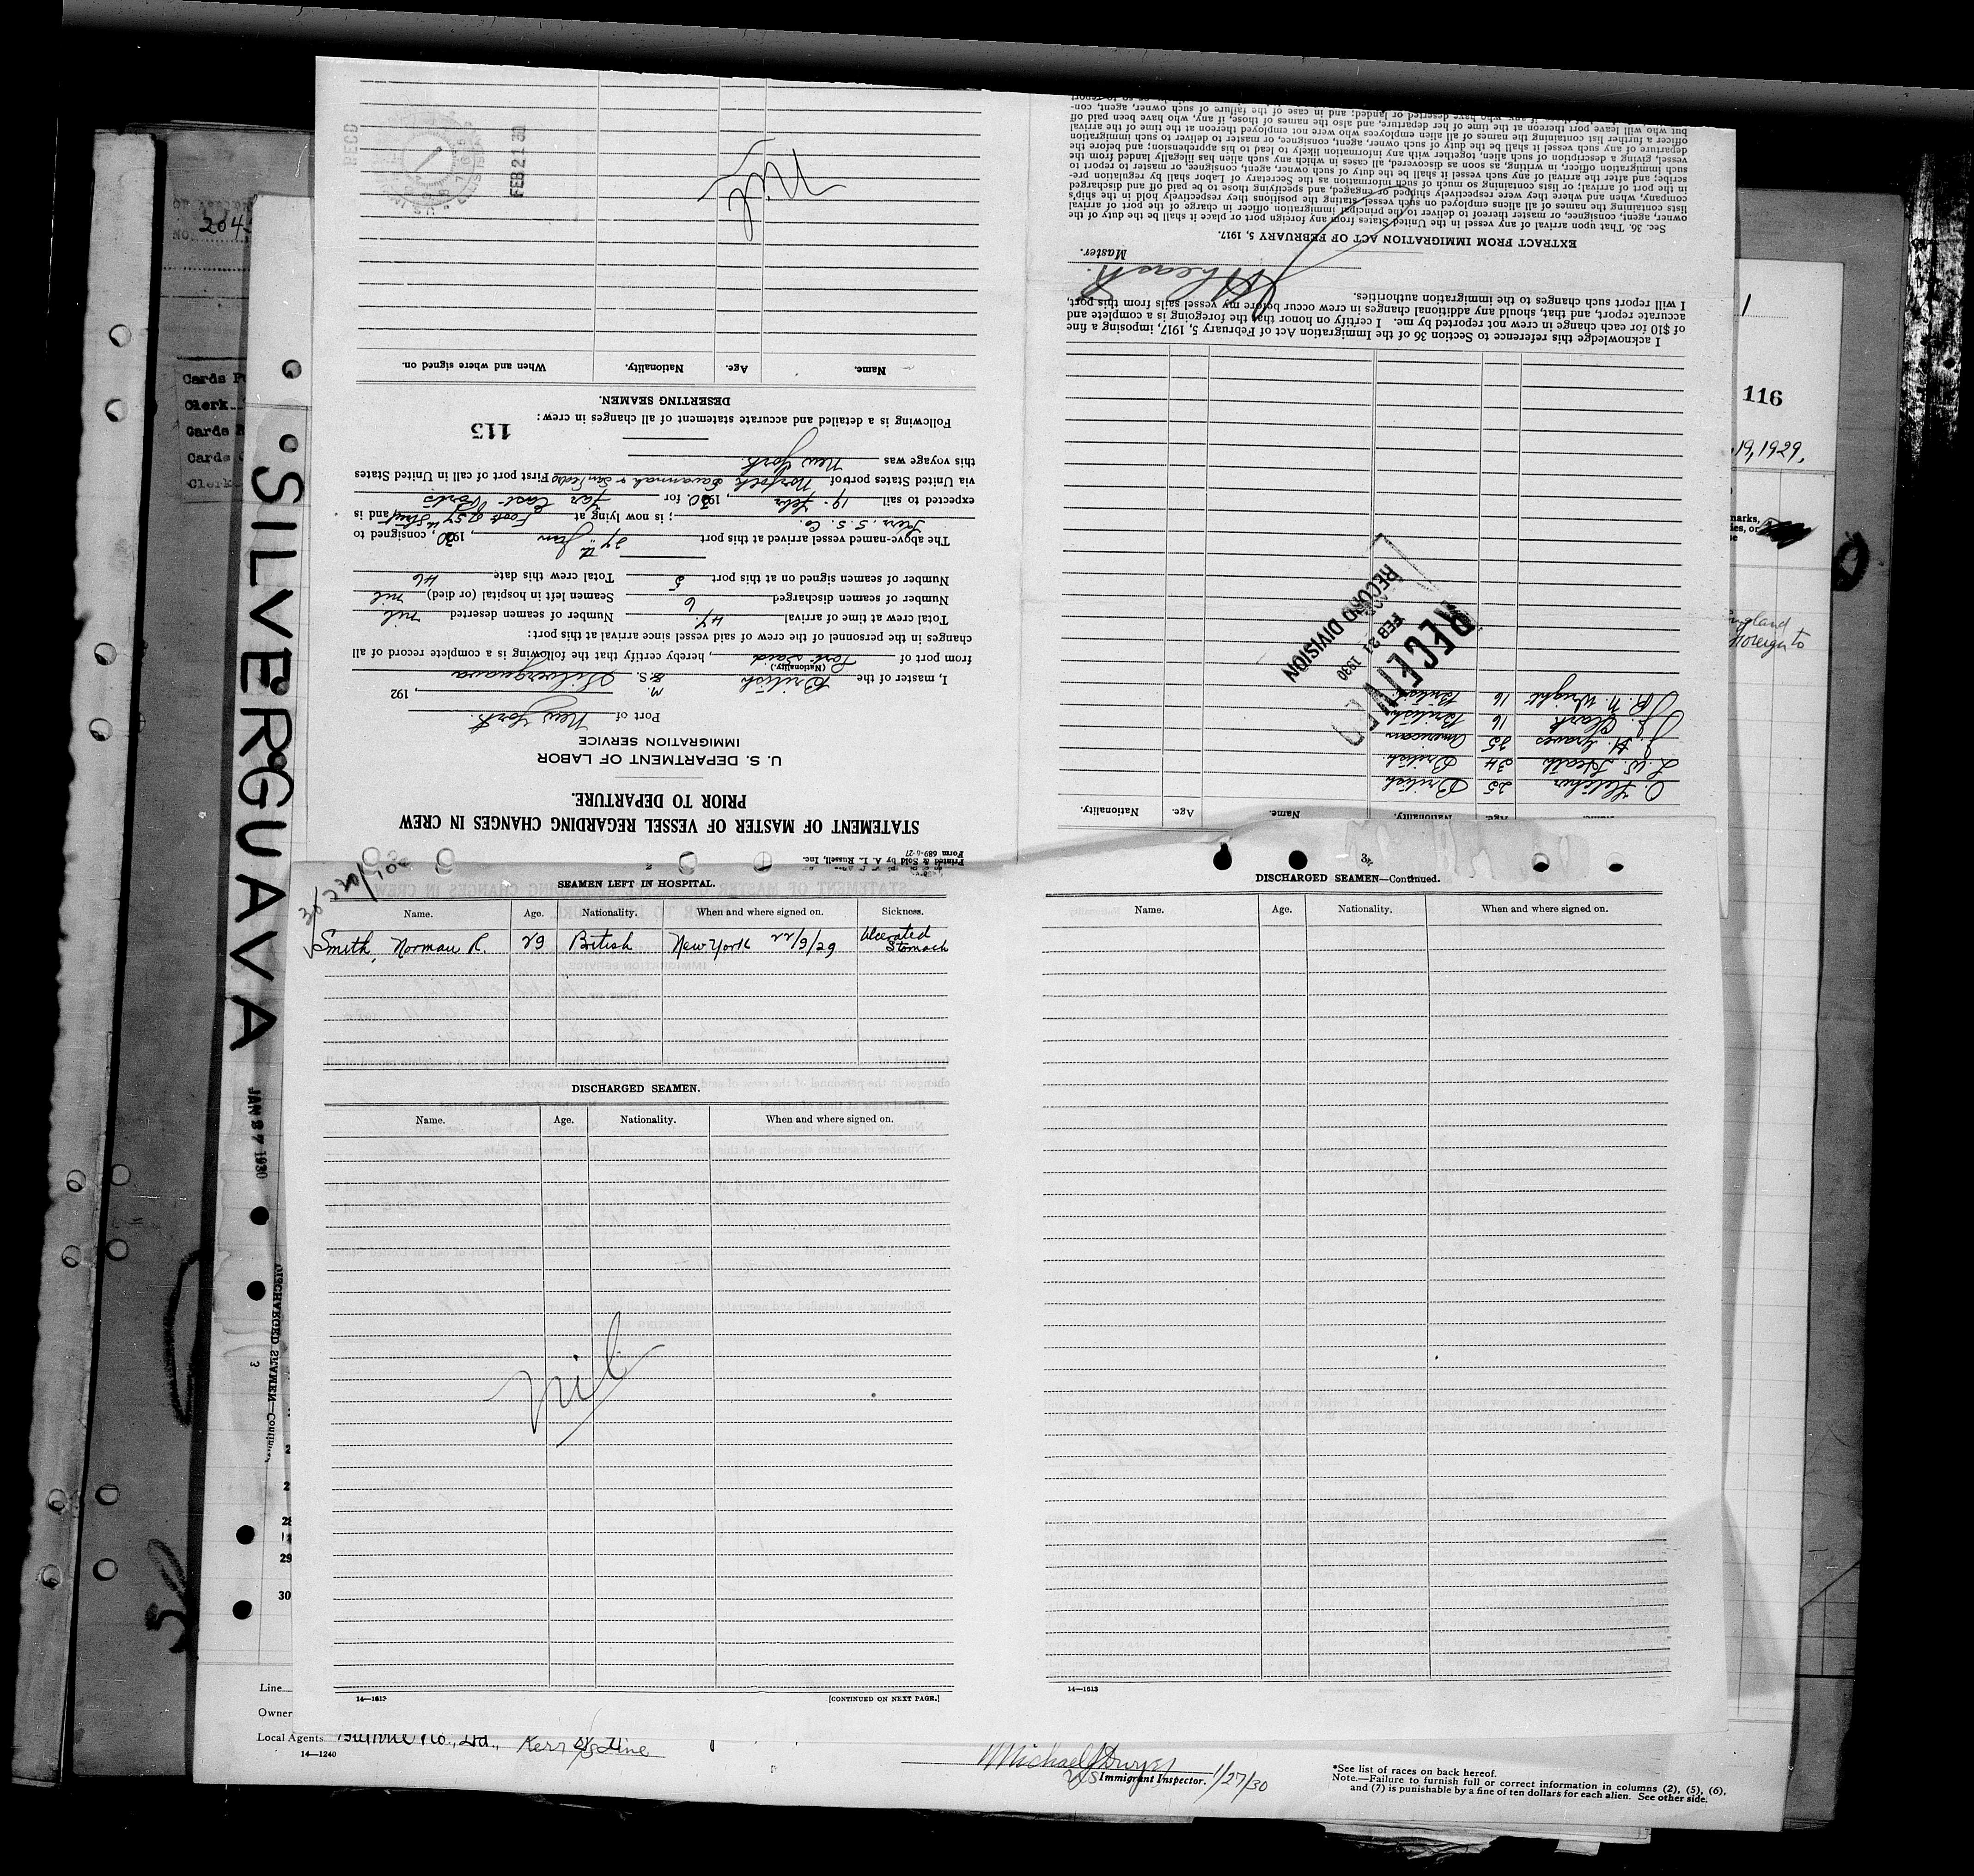 STATEMENT OF MASTER OF VESSEL REGARDING CHANGES IN CREW
PRIOR TO DEPARTURE.
U. S. DEPARTMENT OF LABOR
IMMIGRATION SERVICE
Port of New York. , 192
I, master of the British M S.S. Silverguava
(Nationality.)
from port of Port Said , hereby certify that the following is a complete record of all
changes in the personnel of the crew of said vessel since arrival at this port:
Total crew at time of arrival 47. Number of seamen deserted nil
Number of seamen discharged 6 Seamen left in hospital (or died) nil
Number of seamen signed on at this port 5 Total crew this date 46
The above-named vessel arrived at this port 27th Jan , 1930, consigned to
S. S. Co. ; is now lying at Foot of 57th Street and is
expected to sail 19. Feb , 1930. for Far East Ports
via United States ports of Norfolk Savannah & San Pedro First port of call in United States
this voyage was New York.
Following is a detailed and accurate statement of all changes in crew:
115
DESERTING SEAMEN.
Name. Age. Nationality. When and where signed on.
Nil
FEB 21 30
REC'D
Form 689-6-27
Printed & Sold by A. L. Russell, Inc.
Name. Age. Nationality.
Fletcher 25 British
L. W. Heath 34 British.
J. H. Graves 35 American
J. Clark 16 British
R. N. Wright 16 British
RECEIVED
FEB 21 1930
RECORD DIVISION
I acknowledge this reference to Section 36 of the Immigration Act of February 5, 1917, imposing a fine
of $10 for each change in crew not reported by me. I certify on honor that the foregoing is a complete and
accurate report, and that, should any additional changes in crew occur before my vessel sails from this port,
I will report such changes to the immigration authorities.
Master.
EXTRACT FROM IMMIGRATION ACT OF FEBRUARY 5, 1917.
Sec. 36. That upon arrival of any vessel in the United States from any foreign port or place it shall be the duty of the
owner, agent, consignee, or master thereof to deliver to the principal immigration officer in charge of the port of arrival
lists containing the names of all aliens employed on such vessel, stating the positions they respectively hold in the ship's
company, when and where they were respectively shipped or engaged, and specifying those to be paid off and discharged
in the port of arrival; or lists containing so much of such information as the Secretary of Labor shall by regulation pre-
scribe; and after the arrival of any such vessel it shall be the duty of such owner, agent, consignee, or master to report to
such immigration officer, in writing, as soon as discovered, all cases in which any such alien has illegally landed from the
vessel, giving a description of such alien, together with any information likely to lead to his apprehension; and before the
departure of any such vessel it shall be the duty of such owner, agent, consignee, or master to deliver to such immigration
officer a further list containing the names of all alien employees who were not employed thereon at the time of the arrival
but who will leave port thereon at the time of her departure, and also the names of those, if any, who have been paid off
SEAMEN LEFT IN HOSPITAL.
Name. Age. Nationality. When and where signed on. Sickness.
Smith, Norman R. 29 British New York 22/9/29 Ulcerated Stomach
DISCHARGED SEAMEN.
Name. Age. Nationality. When and where signed on.
nil
14—1613
[CONTINUED ON NEXT PAGE.]
DISCHARGED SEAMEN—Continued.
Name. Age. Nationality. When and where signed on.
14—1613
SILVERGUAVA
JAN 27 1930
DISCHARGED SEAMEN
3
28
29
30
204
NO.
Cards
Clerk
Cards
Cards
Clerk
1
116
19, 1929,
Line
Owner
Local Agents
Kerr S/S Line
14—1240
Michael J Dwyer 1/27/30
US Immigrant Inspector.
*See list of races on back hereof.
Note.—Failure to furnish full or correct information in columns (2), (5), (6),
and (7) is punishable by a fine of ten dollars for each alien. See other side.